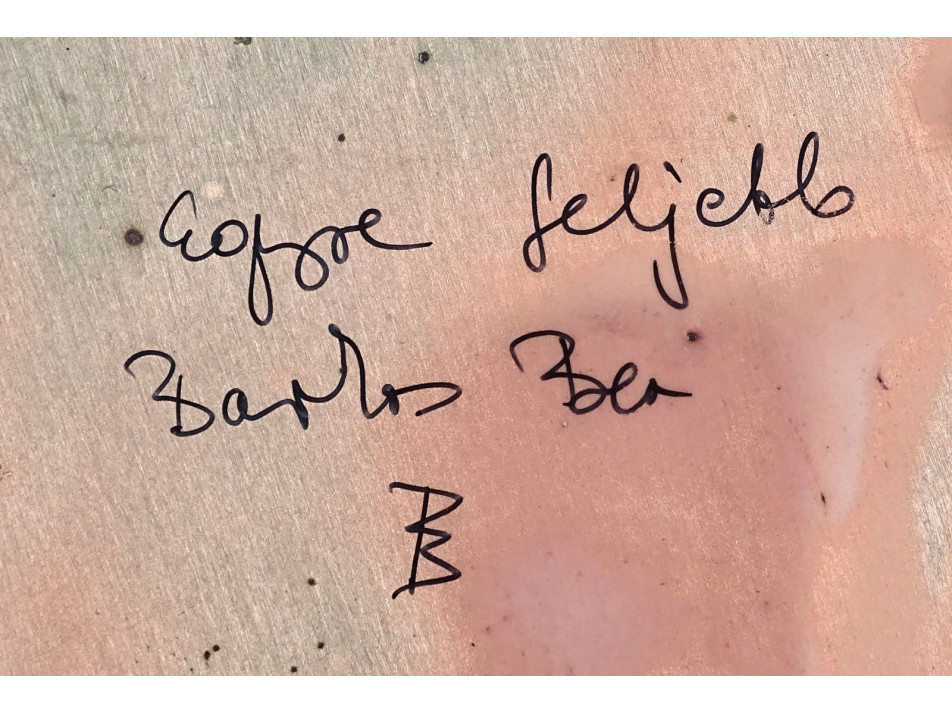 Egyre feljebb
Bartos Bea
B